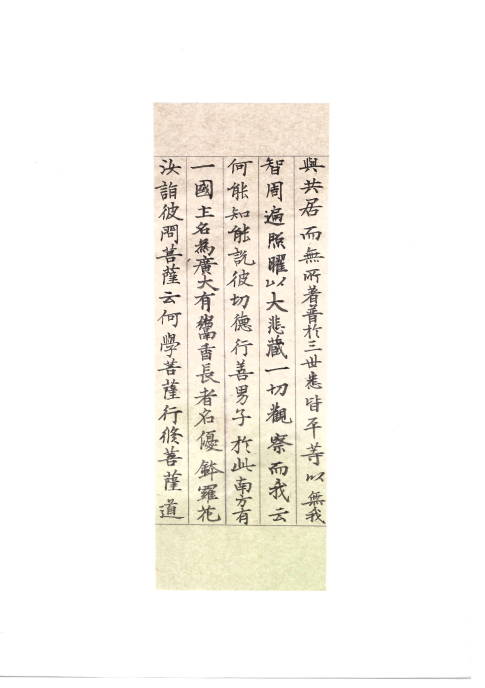 與共居而無所著普於三世悉皆平等以無我
智周遍照曜以大悲藏一切觀察而我云
何能知能說彼功德行善男子於此南方有
一國土名為廣大有鬻香長者名優鉢羅花
汝詣彼問菩薩云何學菩薩行修菩薩道